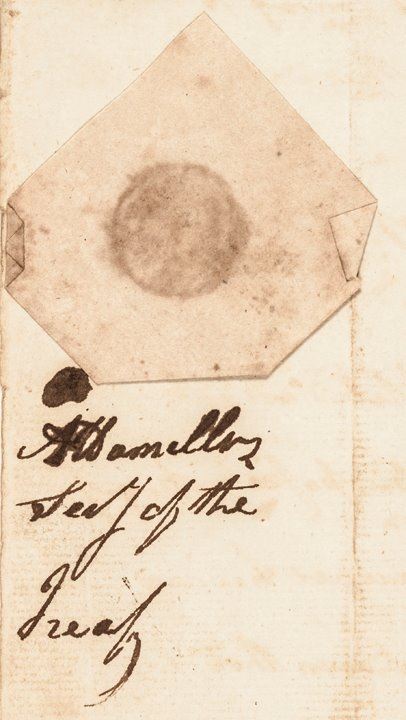 AHamilton
Secy of the
Treasy